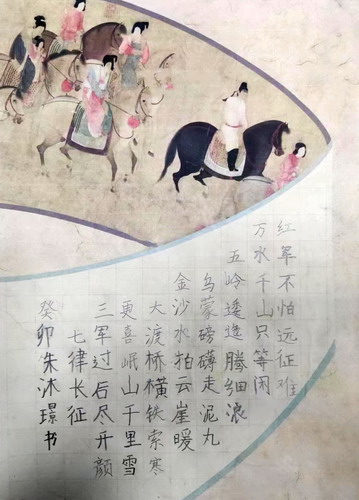 红军不怕远征难
万水千山只等闲
五岭逶迤腾细浪
乌蒙磅礴走泥丸
金沙水拍云崖暖
大渡桥横铁索寒
更喜岷山千里雪
三军过后尽开颜
七律长征
癸卯朱沐璟书